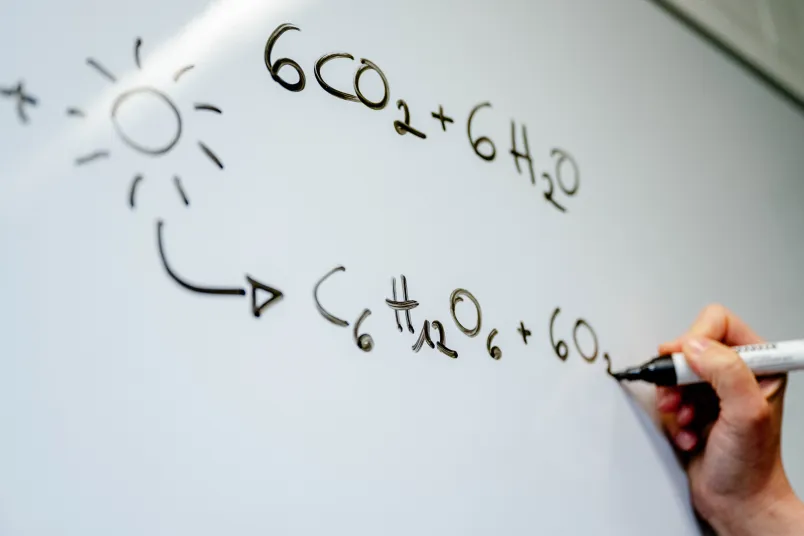 + 6CO₂ + 6H₂O
C₆H₁₂O₆ + 6O₂